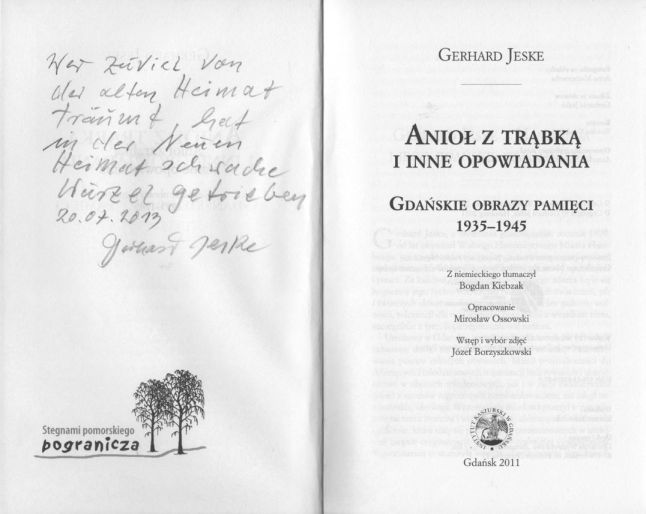 Wer zuviel von
der alten Heimat
träumt, hat
in der Neuen
Heimat schwache
Wurzel getrieben
20.07.2013
Gerhard Jeske
Stegnami pomorskiego
pogranicza
GERHARD JESKE
ANIOŁ Z TRĄBKĄ
I INNE OPOWIADANIA
GDAŃSKIE OBRAZY PAMIĘCI
1935–1945
Z niemieckiego tłumaczył
Bogdan Kiebzak
Opracowanie
Mirosław Ossowski
Wstęp i wybór zdjęć
Józef Borzyszkowski
INSTYTUT KASZUBSKI W GDAŃSKU
Gdańsk 2011